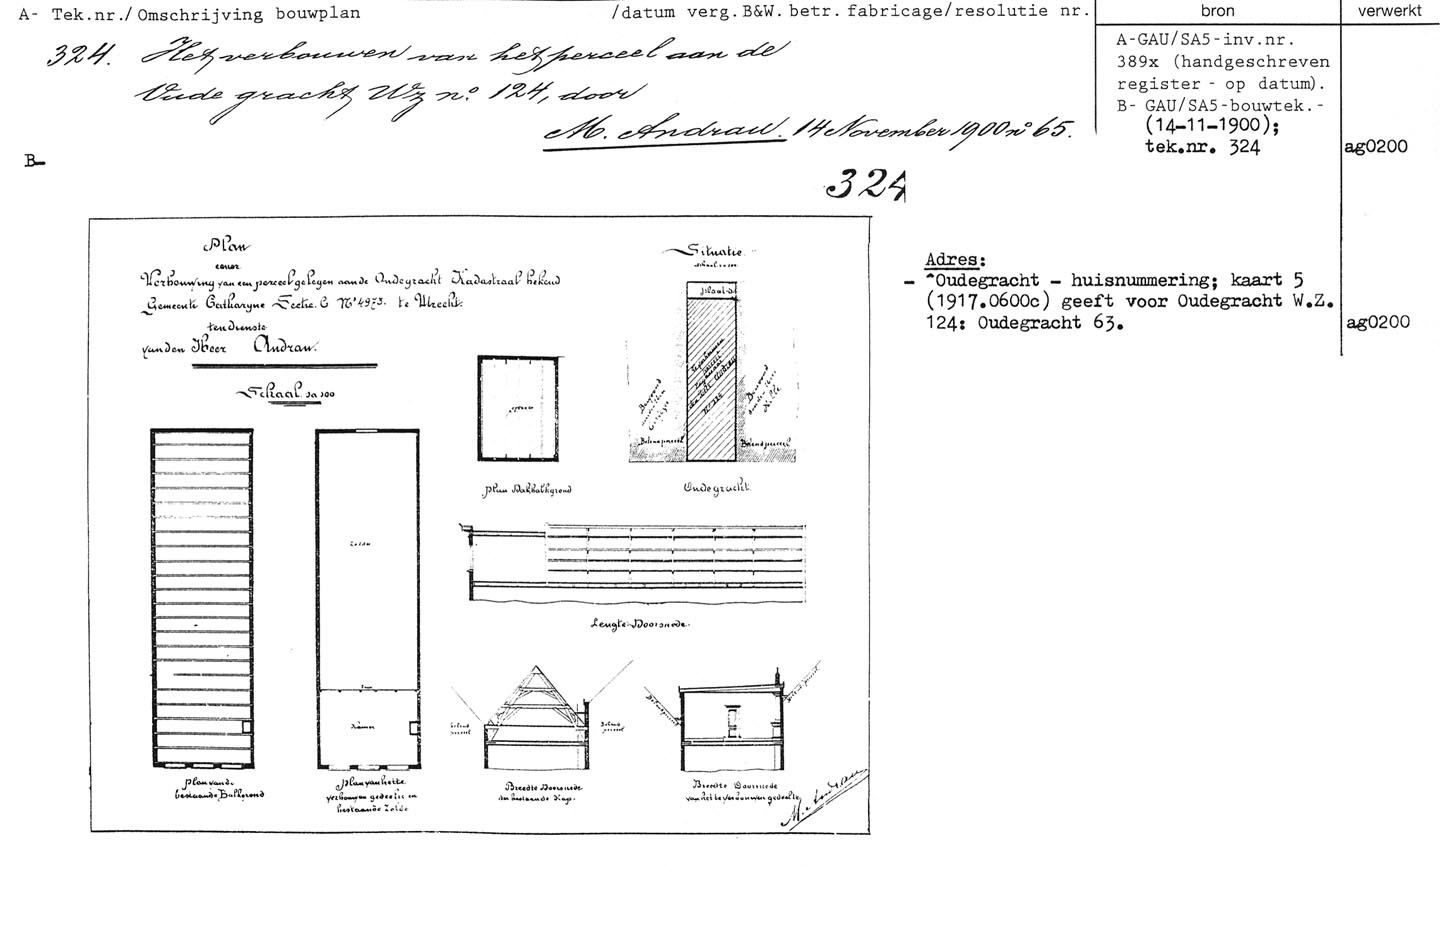 A- Tek.nr./Omschrijving bouwplan /datum verg.B&W.betr.fabricage/resolutie nr.
bron
verwerkt
324. Het verbouwen van het perceel aan de
Oude gracht Wz no. 124, door
M. Andrau. 14 November 1900 no 65.
A-GAU/SA5-inv.nr.
389x (handgeschreven
register - op datum).
B- GAU/SA5-bouwtek.-
(14-11-1900);
tek.nr. 324
ag0200
B-
324
Plan
Verbouwing van een perceel gelegen aan de Oudegracht Kadastraal bekend
Gemeente Catharyne Sectie C No 4973. te Utrecht.
ten dienste
van den Heer Andrau.
Schaal
Situatie
Plan Dakbalkgrond
Oudegracht.
Belendperceel
Belendperceel
Zolder
Kamer
Lengte-Doorsnede.
Plan van de
bestaande Balkgrond
Plan van het te
verbouwen gedeelte en
bestaande Zolder
Belend
perceel
Belend
perceel
Breedte Doorsnede
der bestaande Kap.
Breedte Doorsnede
van het te verbouwen gedeelte
M. Andrau
Adres:
- ^Oudegracht - huisnummering; kaart 5
(1917.0600c) geeft voor Oudegracht W.Z.
124: Oudegracht 63.
ag0200